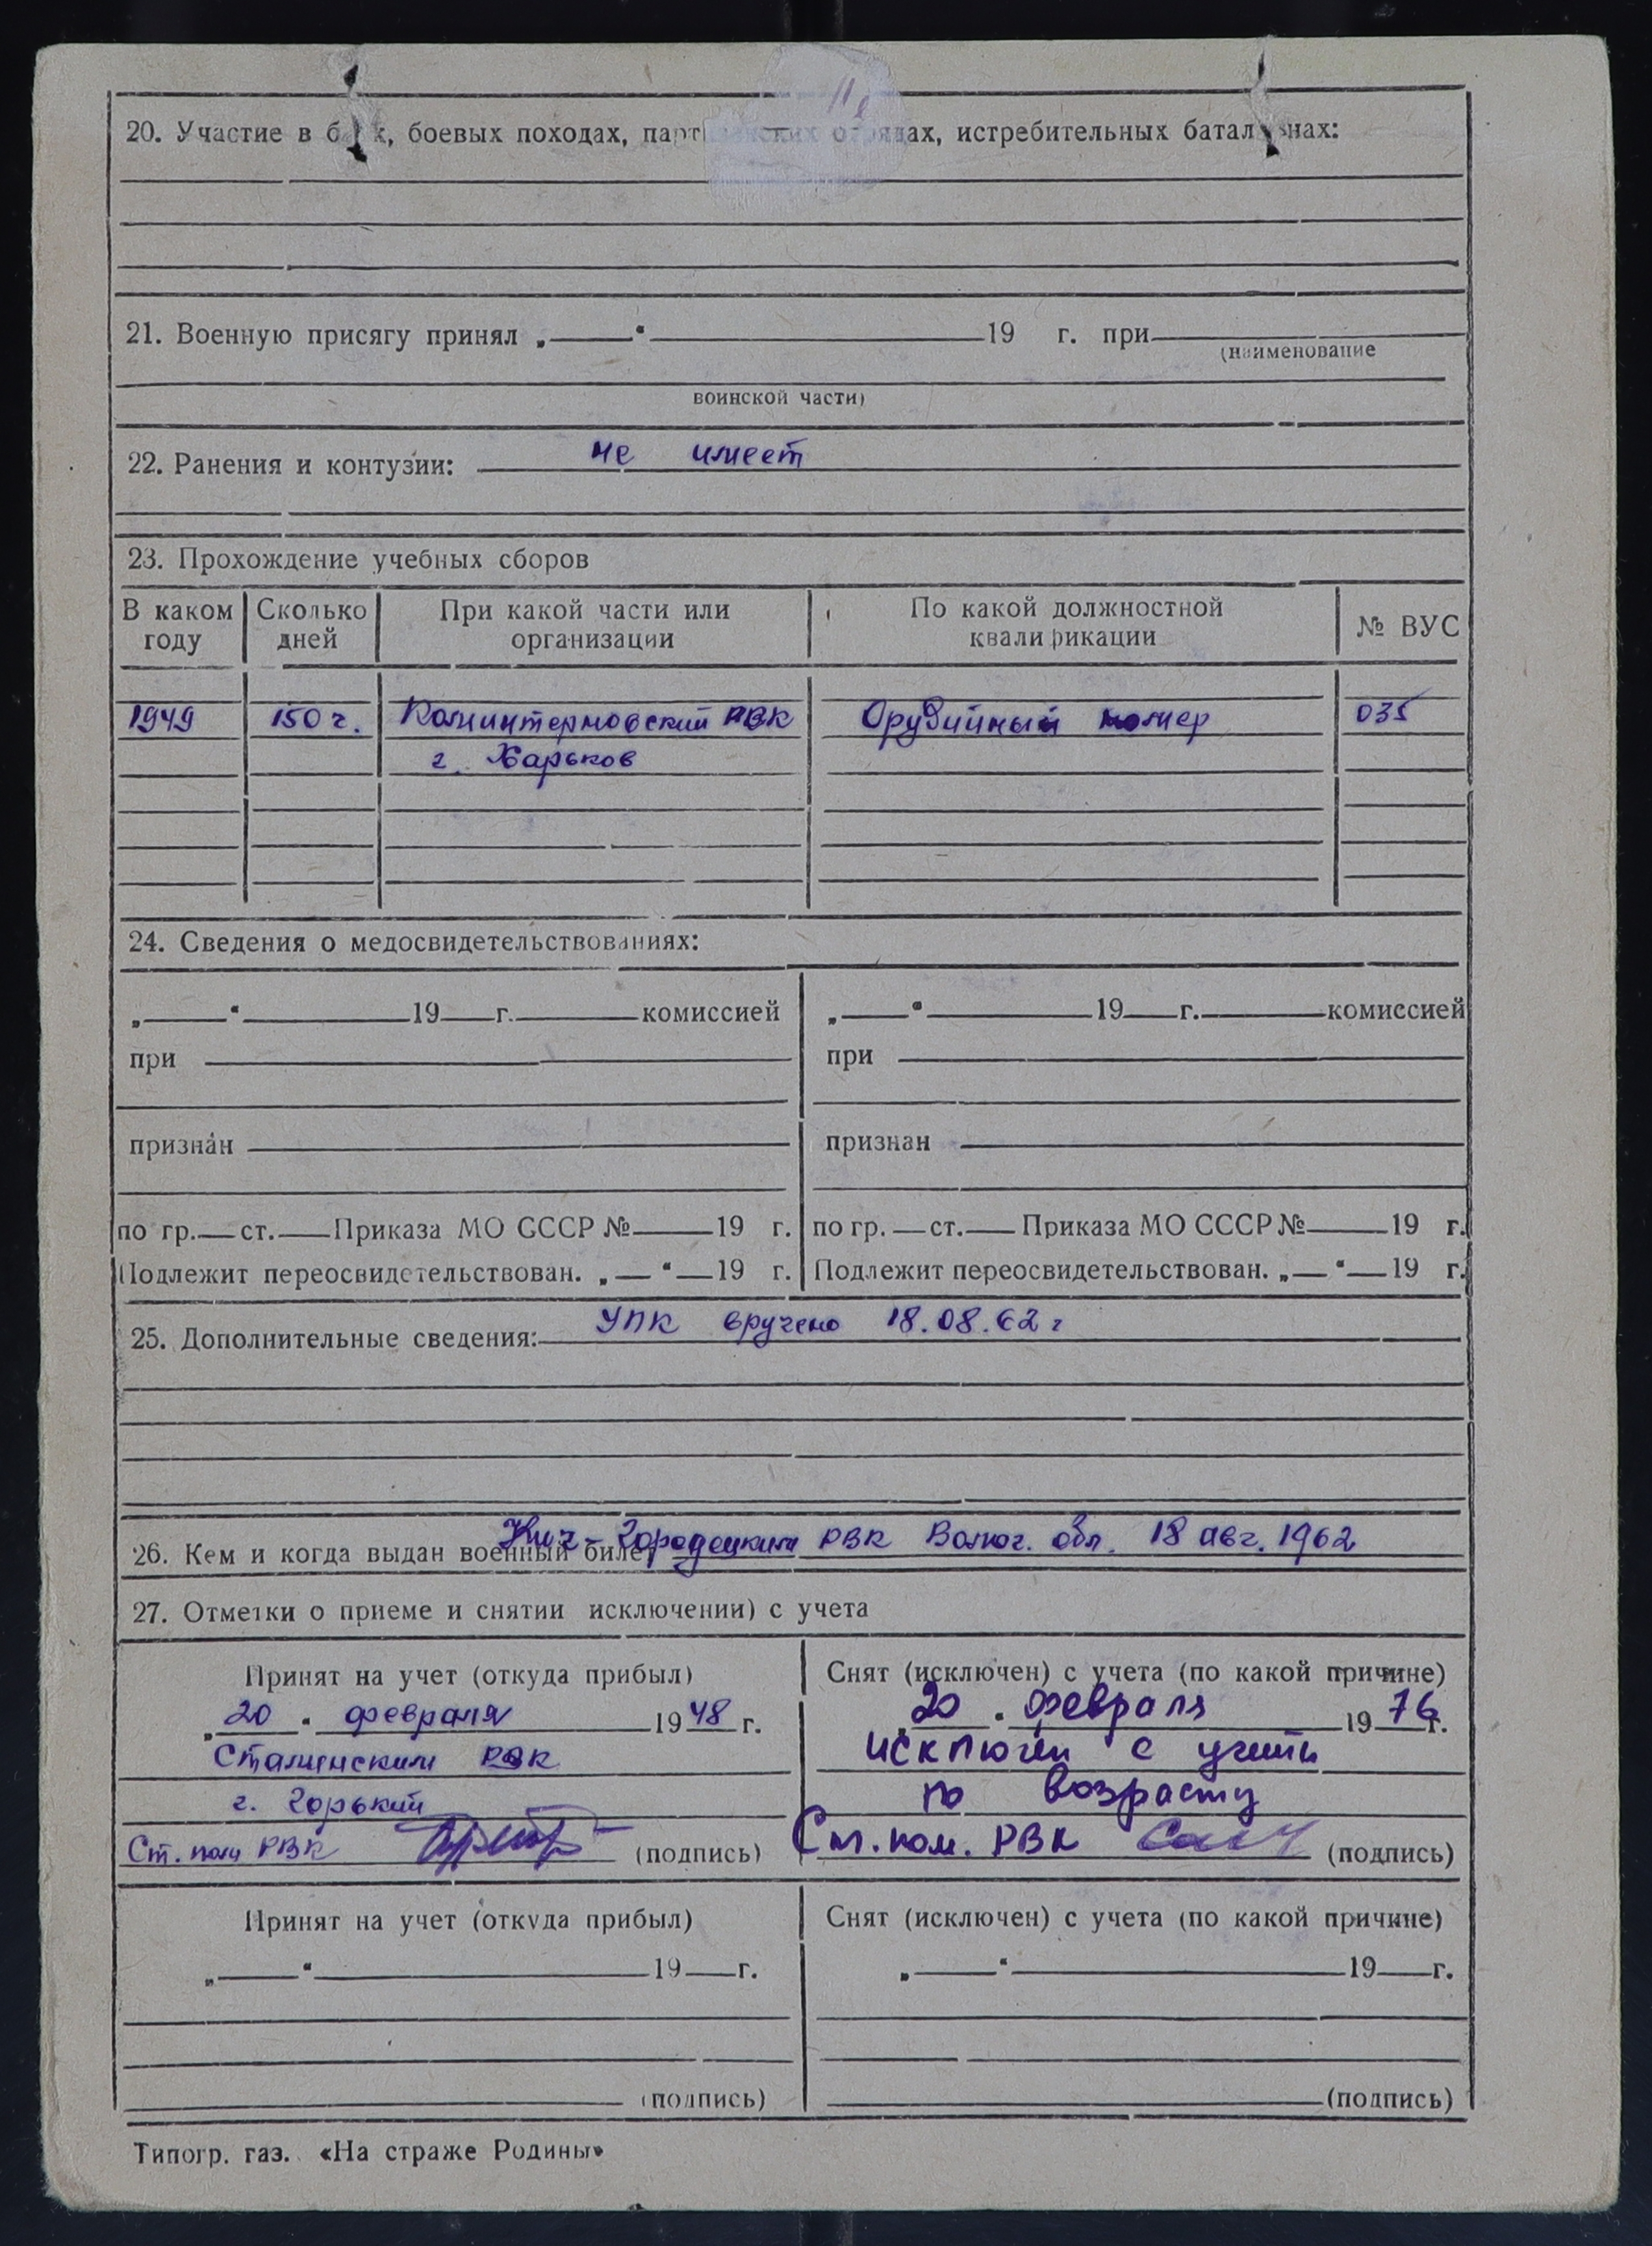 20. Участие в боях, боевых походах, партизанских отрядах, истребительных батальонах:
21. Военную присягу принял „ “ 19 г. при
(наименование
воинской части)
22. Ранения и контузии: не имеет
23. Прохождение учебных сборов
В каком году Сколько дней При какой части или организации По какой должностной квалификации № ВУС
1949 150 ч. Коминтерновский РВК Орудийный номер 035
г. Харьков
24. Сведения о медосвидетельствованиях:
„ “ 19 г. комиссией „ “ 19 г. комиссией
при при
признан признан
по гр. ст. Приказа МО СССР № 19 г. по гр. ст. Приказа МО СССР № 19 г.
Подлежит переосвидетельствован. „ “ 19 г. Подлежит переосвидетельствован. „ “ 19 г.
25. Дополнительные сведения: УПК вручено 18.08.62 г
26. Кем и когда выдан военный билет Кич-Городецким РВК Волог. обл. 18 авг. 1962
27. Отметки о приеме и снятии исключении) с учета
Принят на учет (откуда прибыл) Снят (исключен) с учета (по какой причине)
„20“ февраля 1948 г. 20 февраля 1976 г.
Сталинским РВК исключен с учета
г. Горький по возрасту
Ст. пом РВК (подпись) Ст. пом. РВК (подпись)
Принят на учет (откуда прибыл) Снят (исключен) с учета (по какой причине)
„ “ 19 г. „ “ 19 г.
(подпись) (подпись)
Типогр. газ. «На страже Родины»